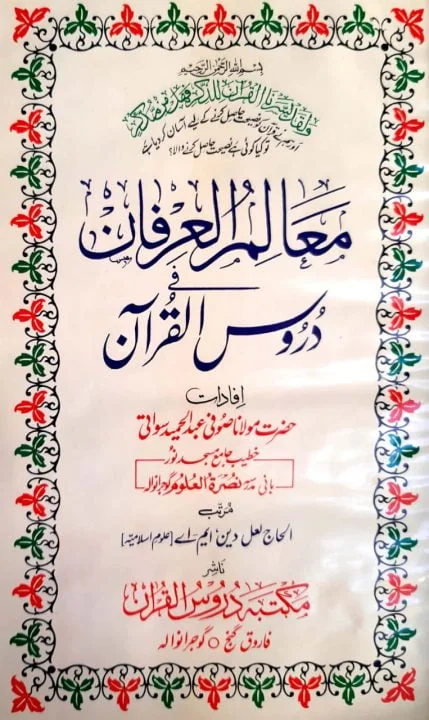 بسم الله الرحمن الرحيم
ولقد يسرنا القرآن للذكر فهل من مدكر
اور ہم نے قرآن کو نصیحت حاصل کرنے کے لیے آسان کر دیا ہے
تو کیا کوئی ہے نصیحت حاصل کرنے والا؟
مَعَالِمُ العِرفَان
في
دُرُوسِ القُرآن
افادات
حضرت مولانا صوفی عبد الحمید سواتی
خطیب جامع مسجد نور
بانی مدرسہ نصرۃ العلوم گوجرانوالہ
مرتب
الحاج لعل دین ایم اے [علوم اسلامیہ]
ناشر
مکتبہ دروس القرآن
فاروق گنج ○ گوجرانوالہ